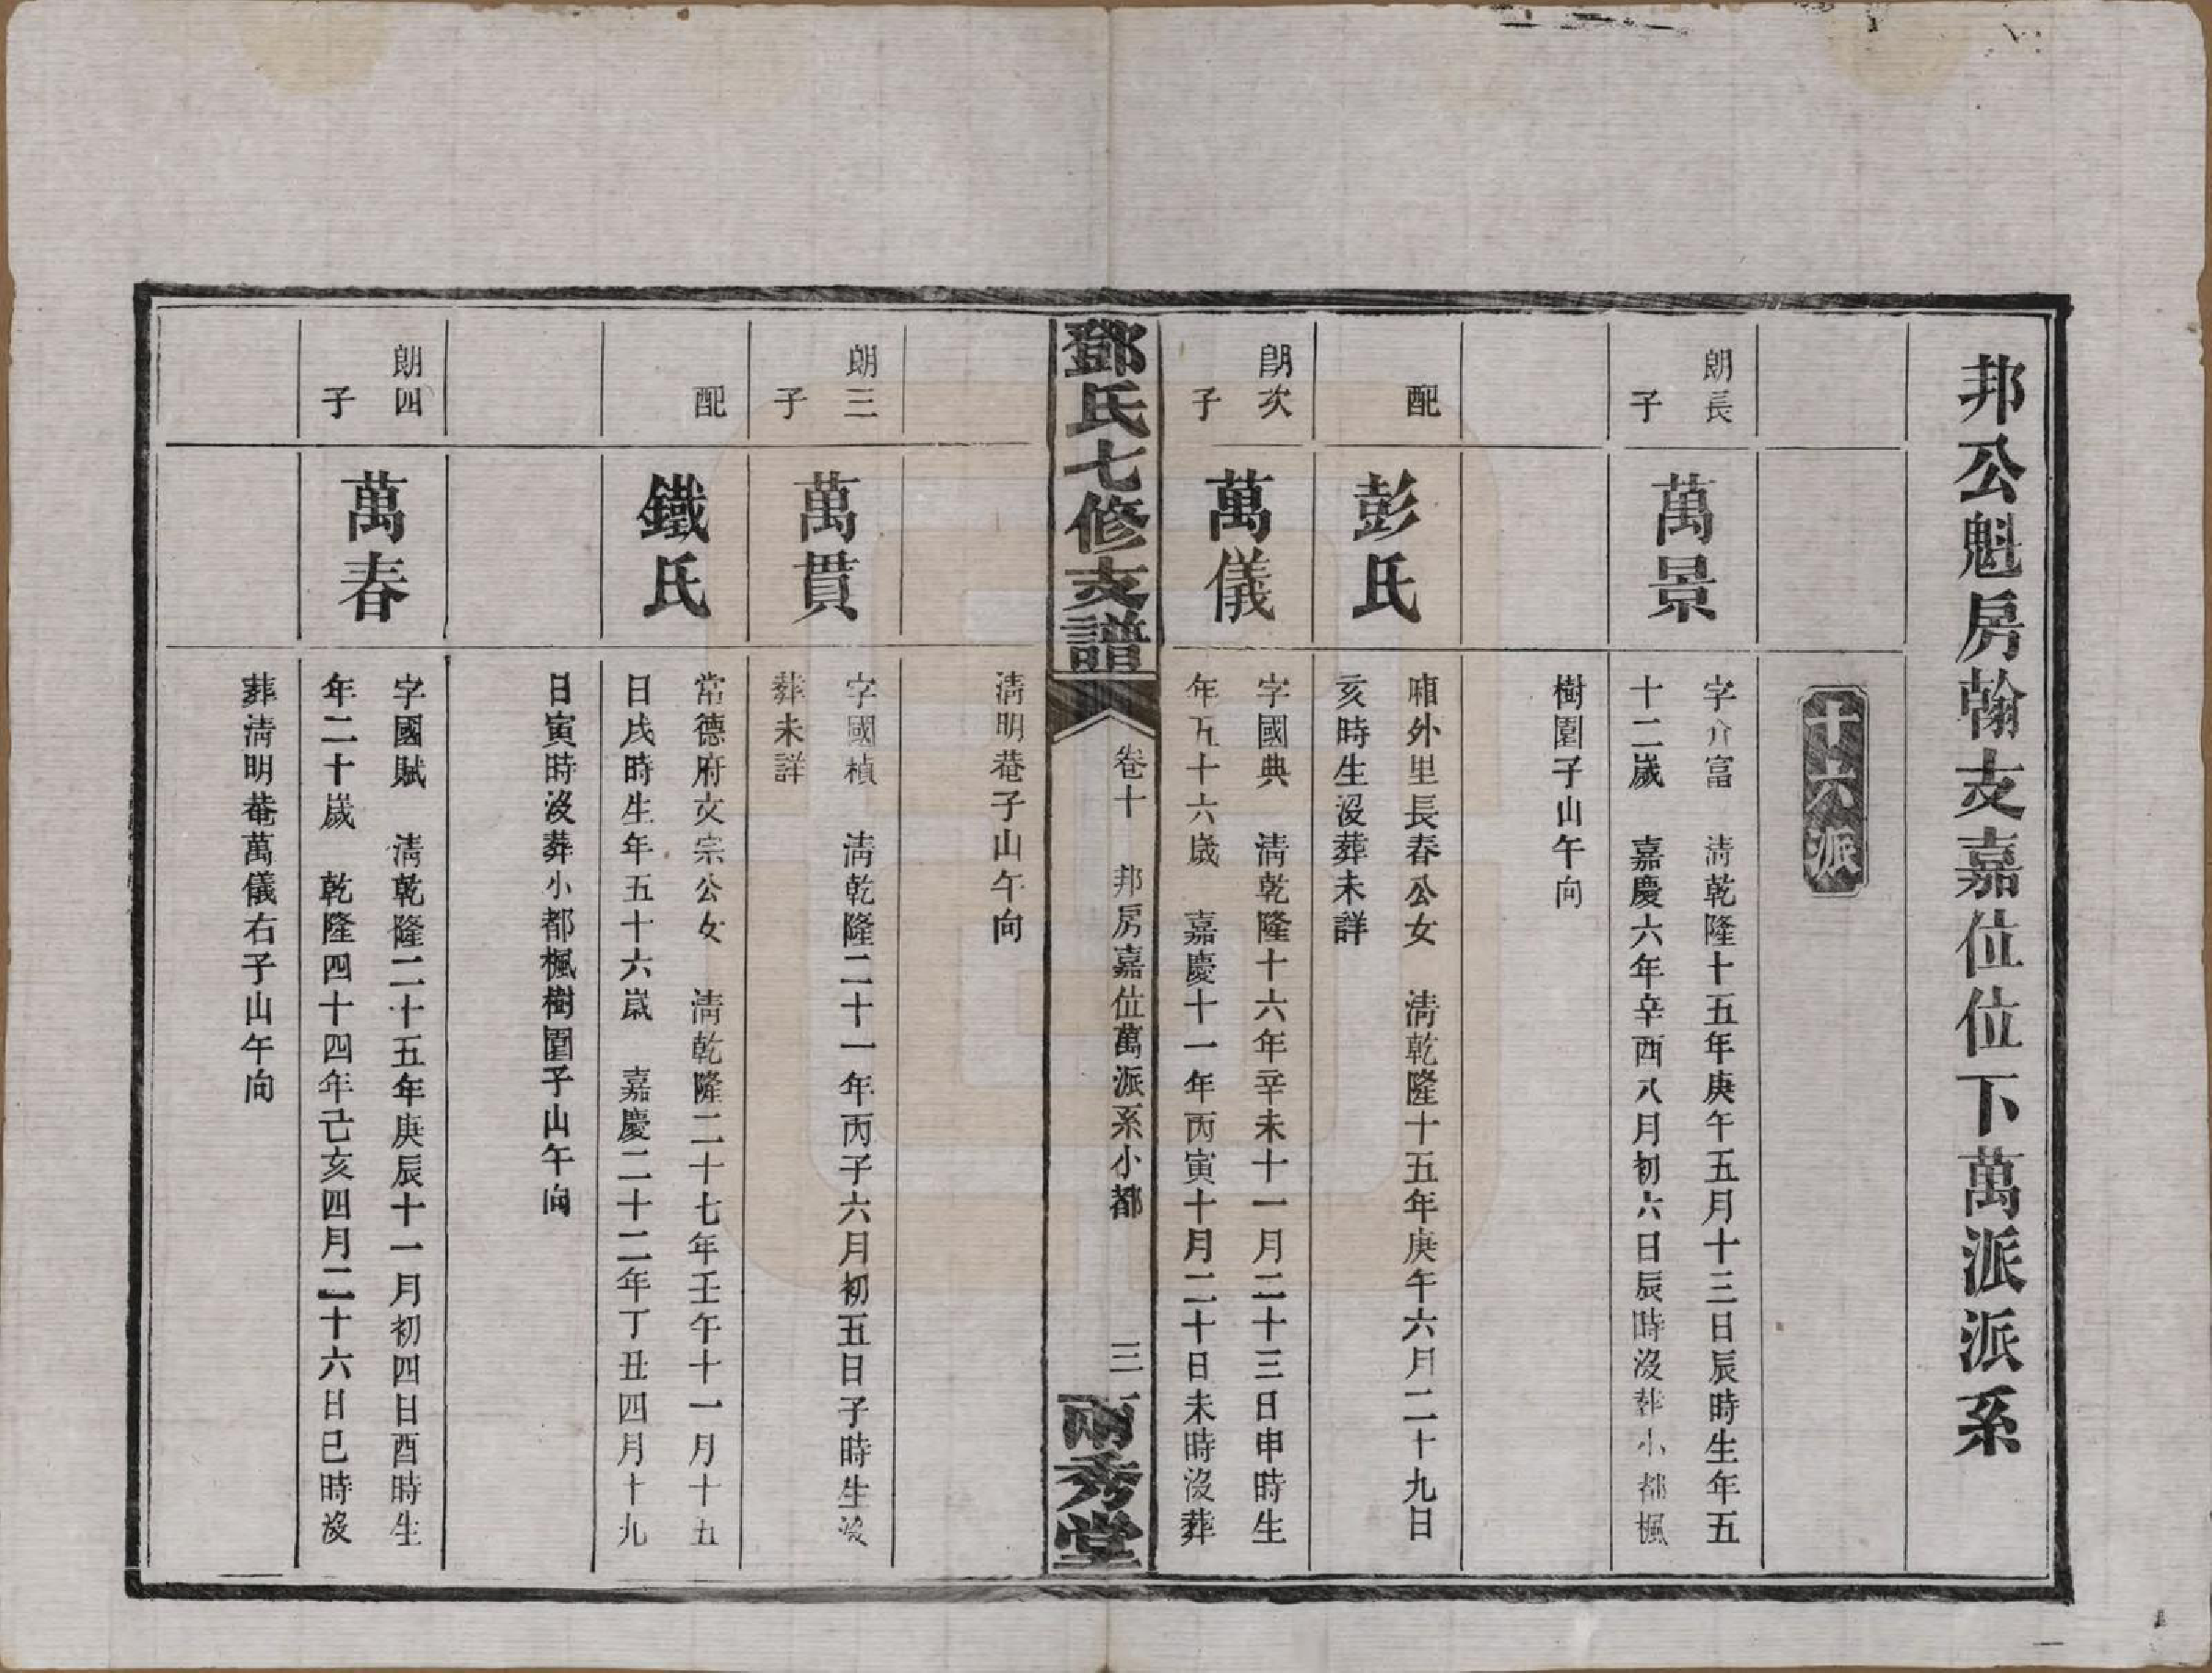 邦公魁房翰支嘉位位下萬派派系
十六派
朗長
子
萬景
字介富　淸乾隆十五年庚午五月十三日辰時生年五
十二歲　嘉慶六年辛酉八月初六日辰時沒葬小都楓
樹園子山午向
配
彭氏
廂外里長春公女　淸乾隆十五年庚午六月二十九日
亥時生沒葬未詳
朗次
子
萬儀
字國典　淸乾隆十六年辛未十一月二十三日申時生
年五十六歲　嘉慶十一年丙寅十月二十日未時沒葬
鄧氏七修支譜
卷十　邦房嘉位萬派系小都
三
兩秀堂
淸明菴子山午向
朗三
子
萬貫
字國楨　淸乾隆二十一年丙子六月初五日子時生沒
葬未詳
配
鐵氏
常德府文宗公女　淸乾隆二十七年壬午十一月十五
日戌時生年五十六歲　嘉慶二十二年丁丑四月十九
日寅時沒葬小都楓樹園子山午向
朗四
子
萬春
字國賦　淸乾隆二十五年庚辰十一月初四日酉時生
年二十歲　乾隆四十四年己亥四月二十六日巳時沒
葬淸明菴萬儀右子山午向